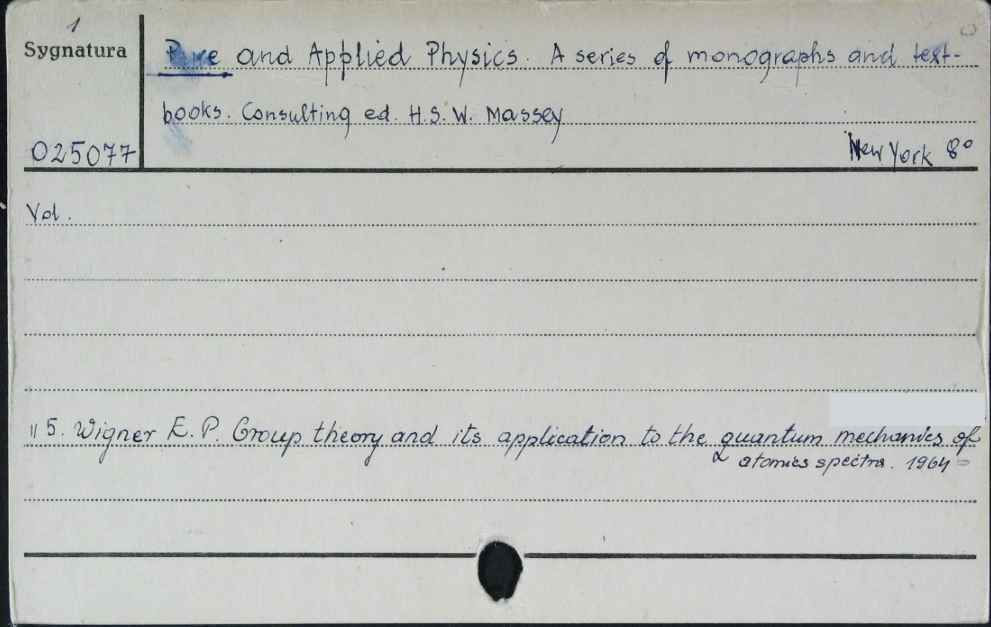 1
Sygnatura
Pure and Applied Physics. A series of monographs and text-
books. Consulting ed. H.S.W. Massey
025077
New York 8°
Vol.
" 5. Wigner E.P. Group theory and its application to the quantum mechanics of
atomics spectra. 1964